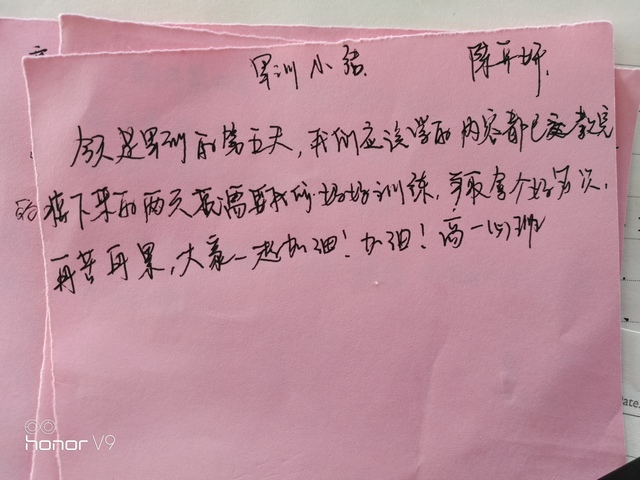 军训小结 陈开妍
今天是军训的第五天,我们应该学的内容都已教完
接下来的两天就需要我们好好训练,争取拿个好名次,
再苦再累,大家一起加油!加油!高一(5)班
honor V9
ate.